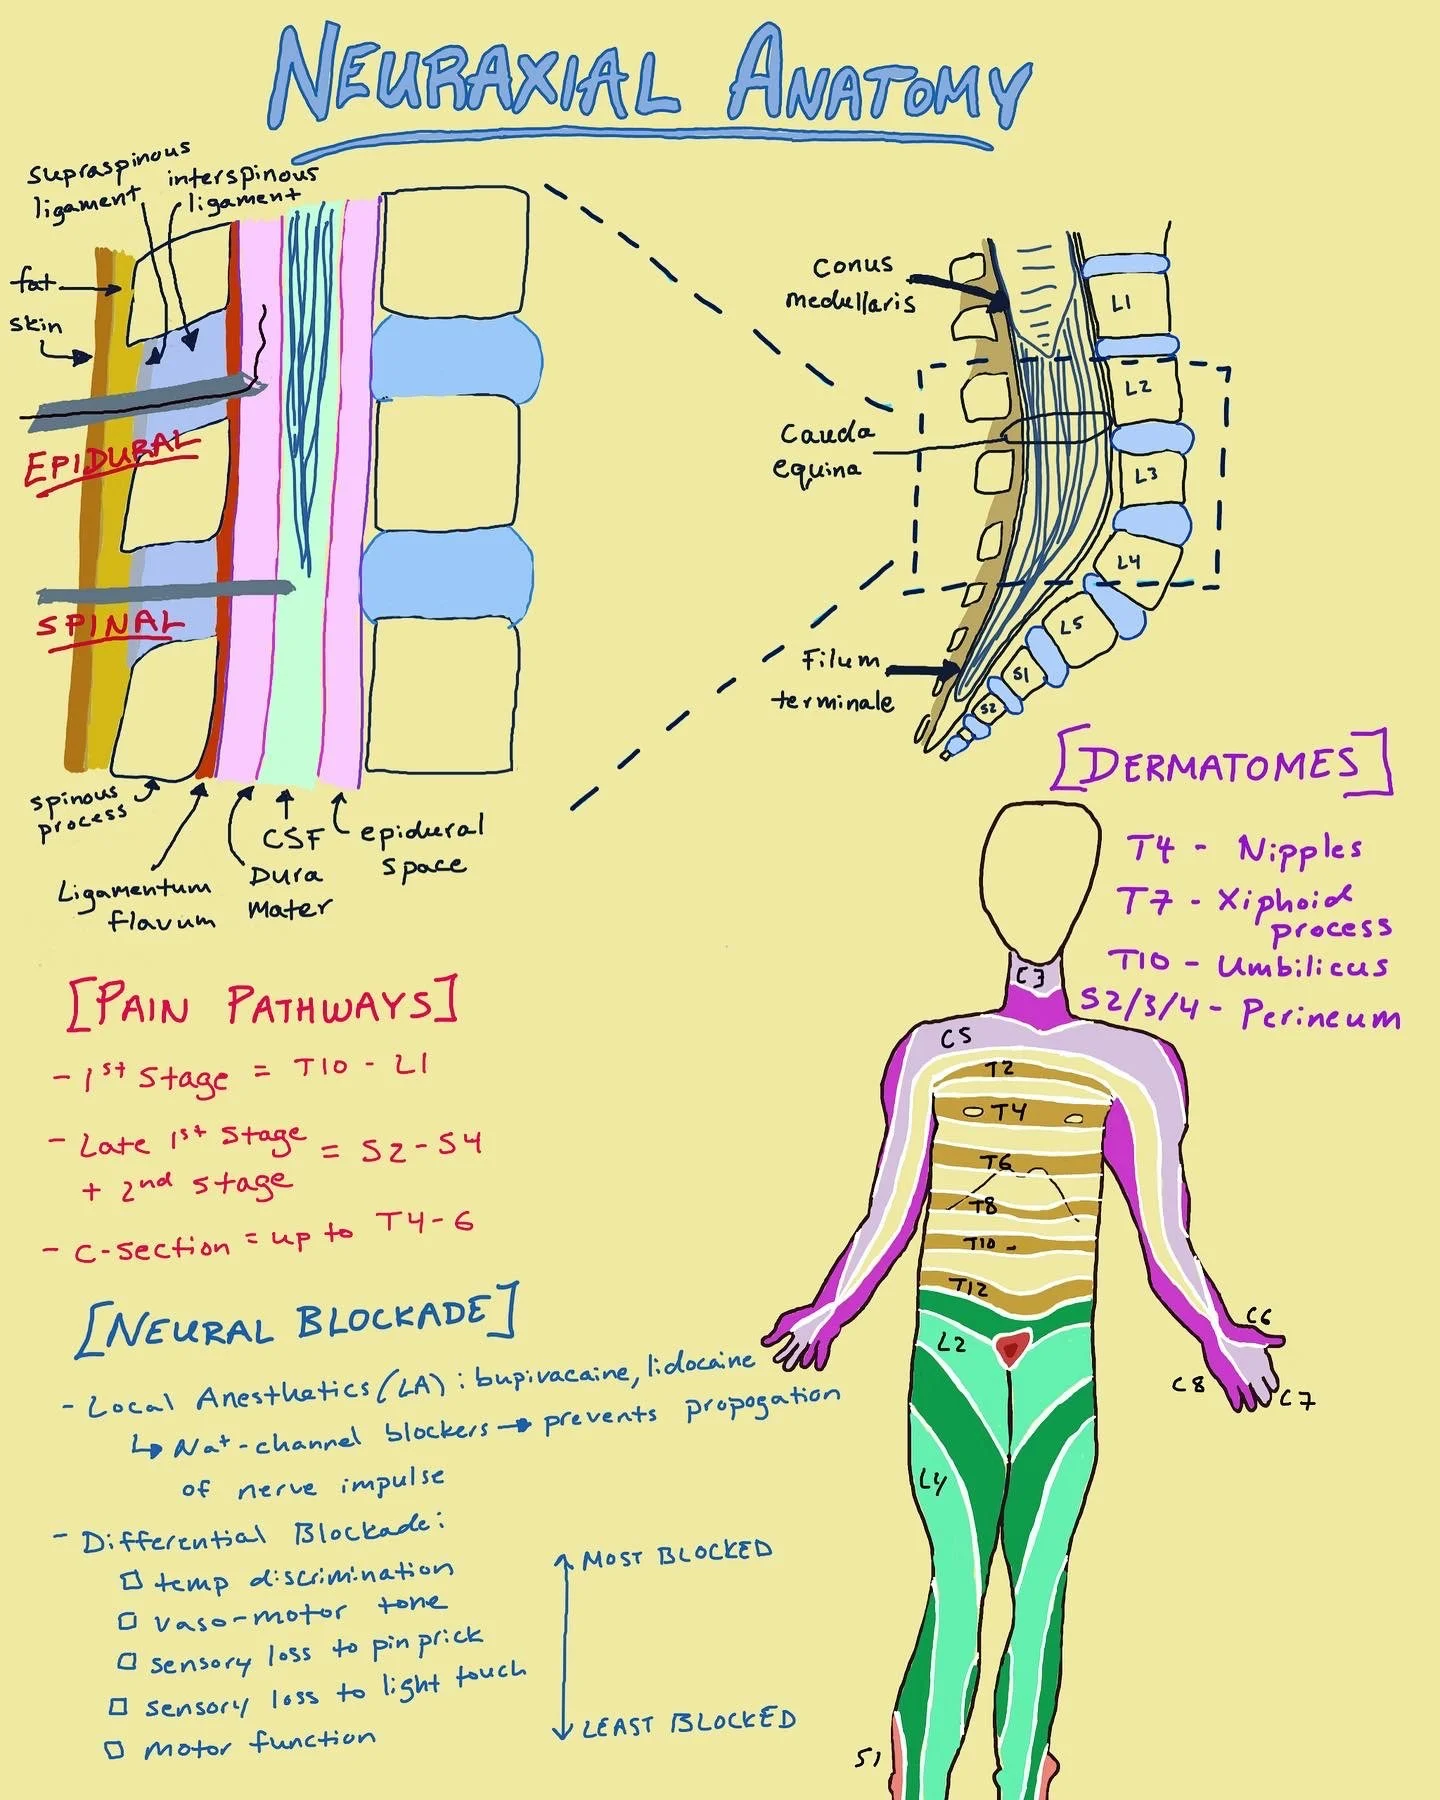 NEURAXIAL ANATOMY
supraspinous
ligament
interspinous
ligament
fat
skin
EPIDURAL
SPINAL
spinous
process
Ligamentum
flavum
Dura
Mater
CSF
epidural
space
Conus
medullaris
Cauda
equina
Filum
terminale
L1
L2
L3
L4
L5
S1
S2
[DERMATOMES]
T4 - Nipples
T7 - Xiphoid
process
T10 - Umbilicus
S2/3/4 - Perineum
C3
C5
T2
T4
T6
T8
T10
T12
L2
L4
S1
C6
C7
C8
[PAIN PATHWAYS]
- 1st Stage = T10 - L1
- Late 1st Stage
+ 2nd stage = S2-S4
- C-section = up to T4-6
[NEURAL BLOCKADE]
- Local Anesthetics (LA): bupivacaine, lidocaine
↳ Na+-channel blockers → prevents propogation
of nerve impulse
- Differential Blockade:
□ temp discrimination
□ vaso-motor tone
□ sensory loss to pin prick
□ sensory loss to light touch
□ motor function
MOST BLOCKED
LEAST BLOCKED